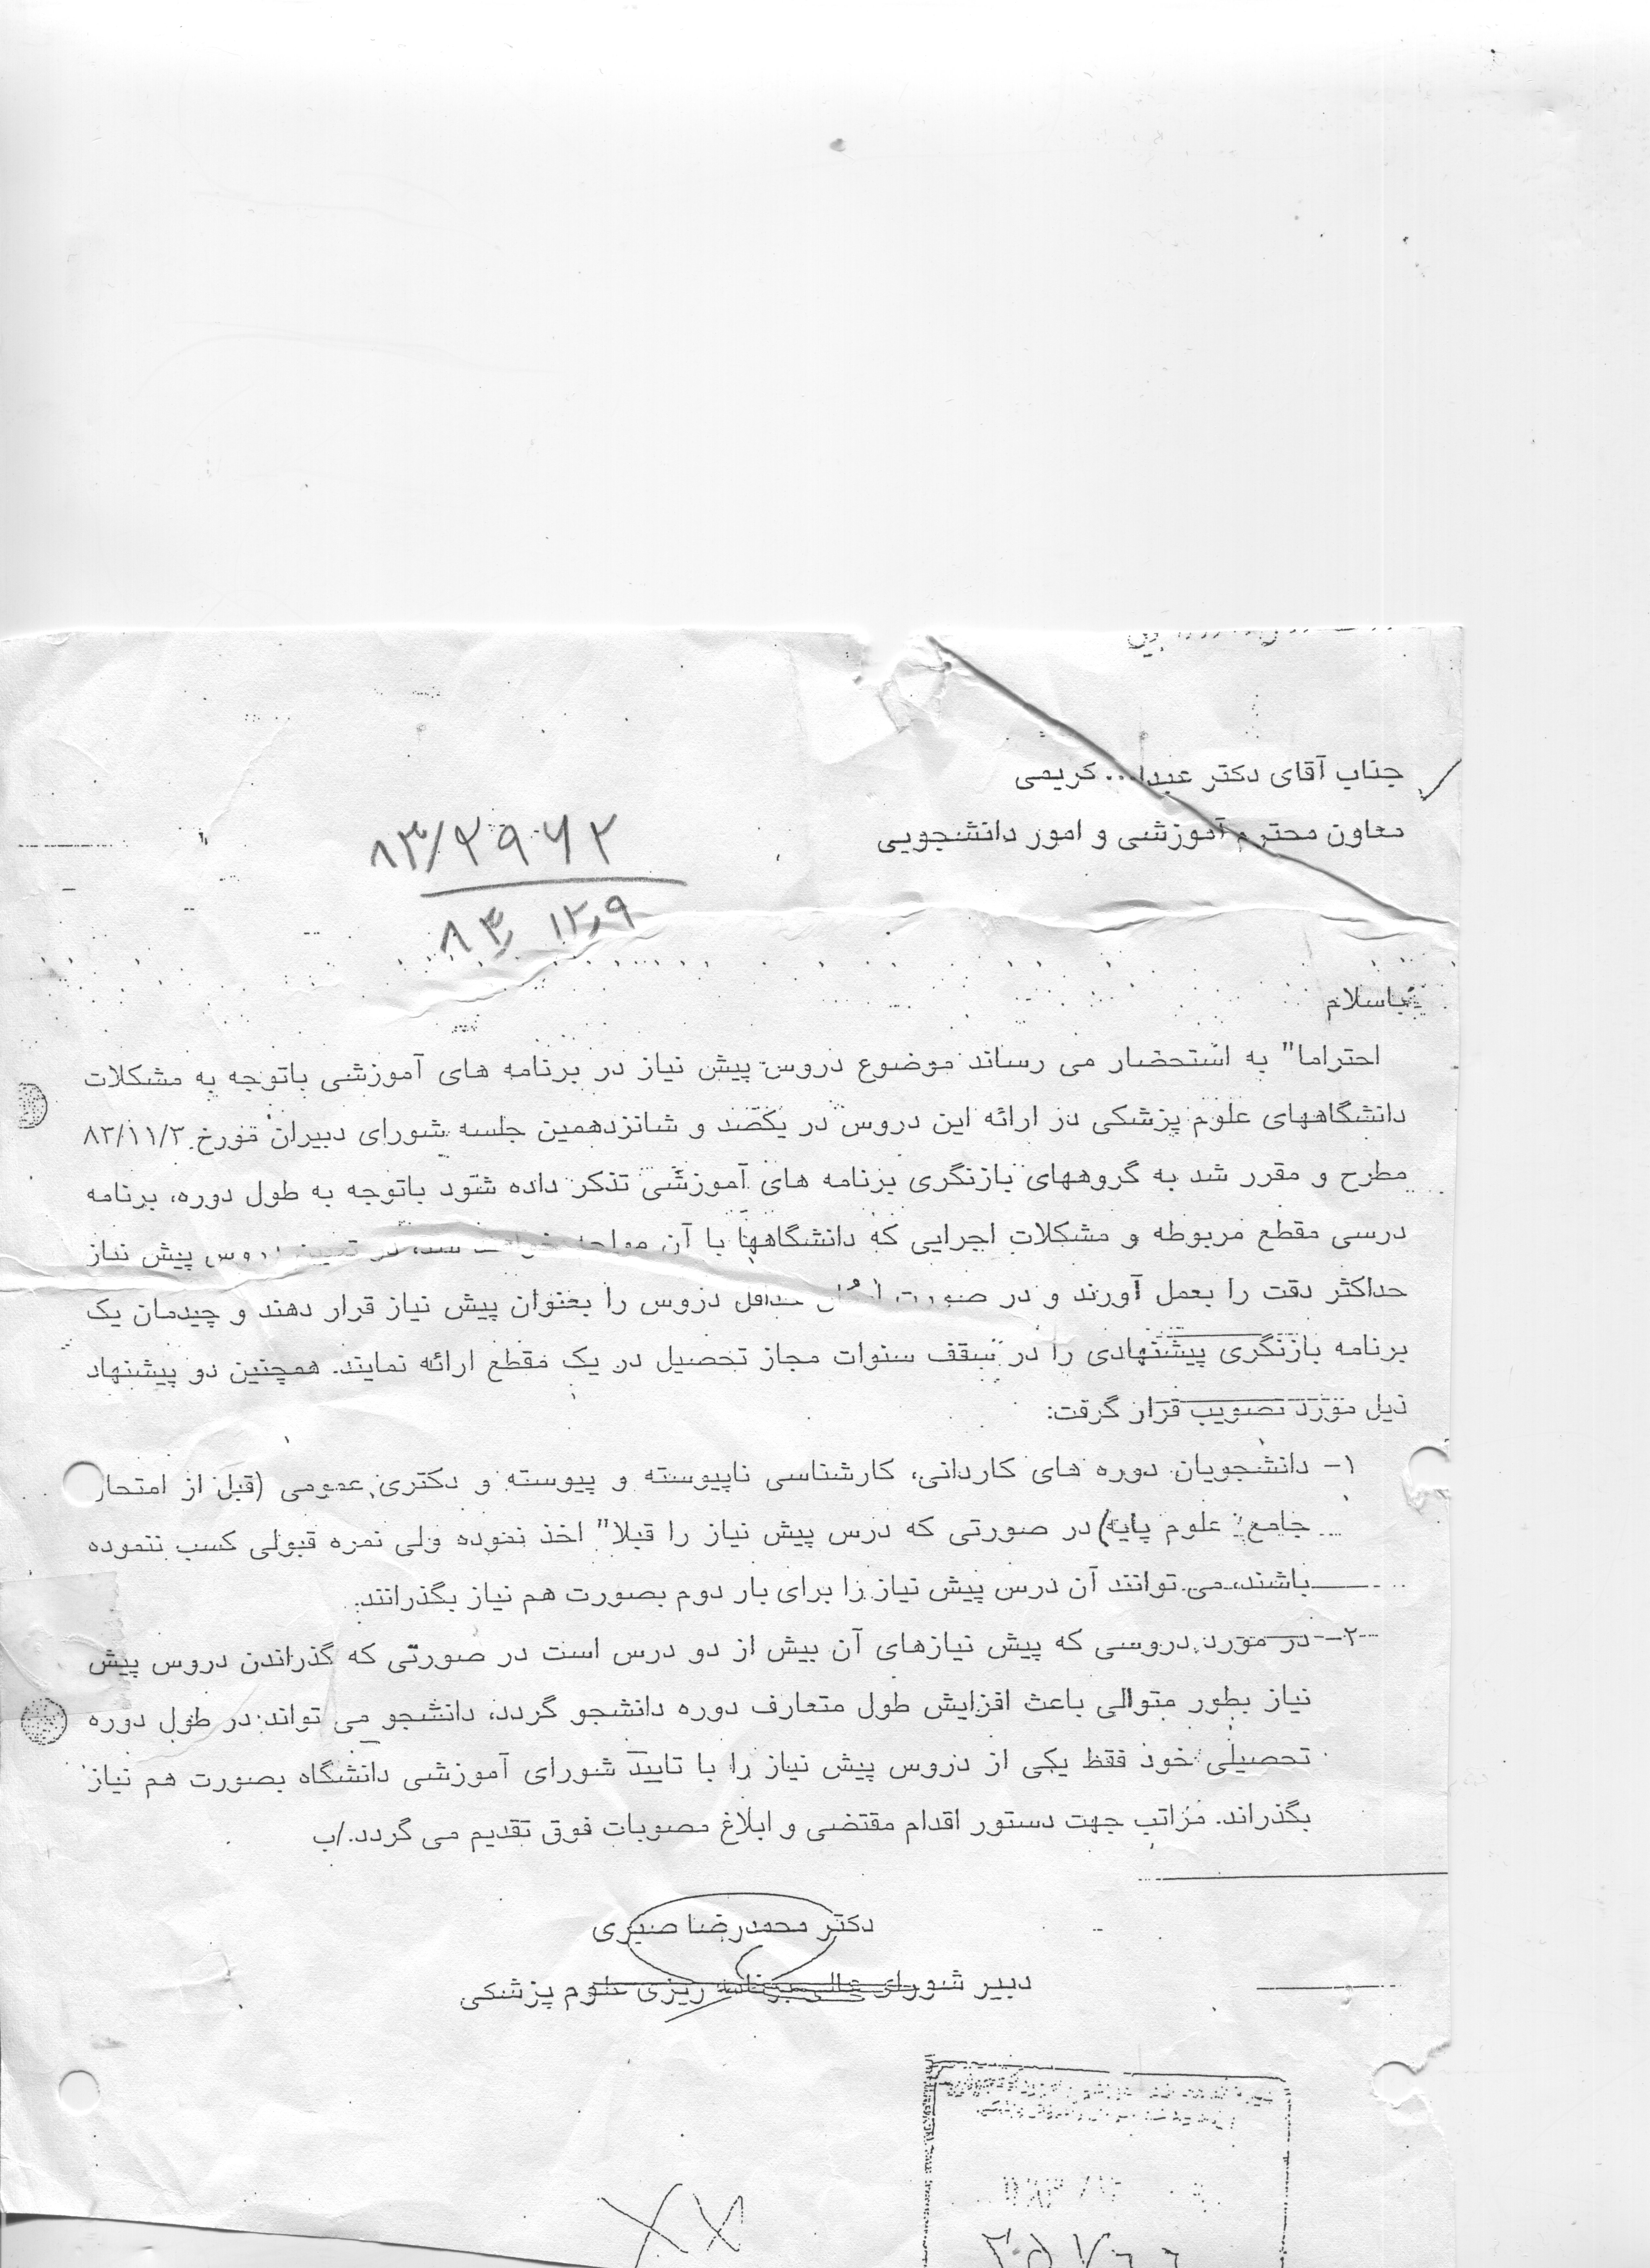 جناب آقای دکتر عبدا... کریمی
معاون محترم آموزشی و امور دانشجویی
۸۳/۲۹۶۲
۸۳ ۱۲٫۹
باسلام
احتراما" به استحضار می رساند موضوع دروس پیش نیاز در برنامه های آموزشی باتوجه به مشکلات
دانشگاههای علوم پزشکی در ارائه این دروس در یکصد و شانزدهمین جلسه شورای دبیران مورخ ۸۳/۱۱/۳
مطرح و مقرر شد به گروههای بازنگری برنامه های آموزشی تذکر داده شود باتوجه به طول دوره، برنامه
درسی مقطع مربوطه و مشکلات اجرایی که دانشگاهها با آن دروس پیش نیاز
حداکثر دقت را بعمل آورند و در صورت حداقل دروس را بعنوان پیش نیاز قرار دهند و چیدمان یک
برنامه بازنگری پیشنهادی را در سقف سنوات مجاز تحصیل در یک مقطع ارائه نمایند. همچنین دو پیشنهاد
ذیل مورد تصویب قرار گرفت:
۱- دانشجویان دوره های کاردانی، کارشناسی ناپیوسته و پیوسته و دکتری عمومی (قبل از
جامع علوم پایه) در صورتی که درس پیش نیاز را قبلا" اخذ نموده ولی نمره قبولی کسب ننموده
باشند، می توانند آن درس پیش نیاز را برای بار دوم بصورت هم نیاز بگذرانند.
۲- در مورد دروسی که پیش نیازهای آن بیش از دو درس است در صورتی که گذراندن دروس پیش
نیاز بطور متوالی باعث افزایش طول متعارف دوره دانشجو گردد، دانشجو می تواند در طول دوره
تحصیلی خود فقط یکی از دروس پیش نیاز را با تایید شورای آموزشی دانشگاه بصورت هم نیاز
بگذراند. مراتب جهت دستور اقدام مقتضی و ابلاغ مصوبات فوق تقدیم می گردد./ب
دکتر محمدرضا صبری
دبیر شورای عالی برنامه ریزی علوم پزشکی